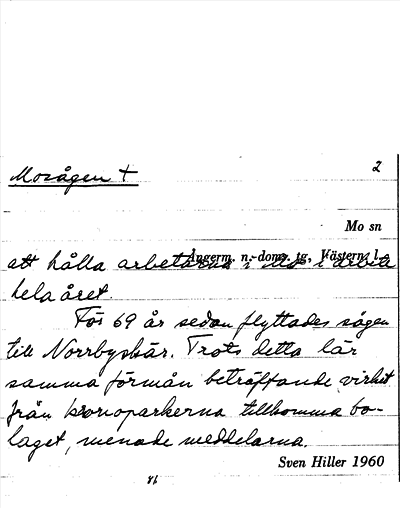 2
Mosågen +
Mo sn
Ångerm. n. doms. tg, Västern. l.
att hålla arbetarna i Mo i arbete
hela året.
För 69 år sedan flyttades sågen
till Norrbyskär. Trots detta lär
samma förmån beträffande virket
från kronoparkerna tillkomma bo-
laget, menade meddelarna.
Sven Hiller 1960